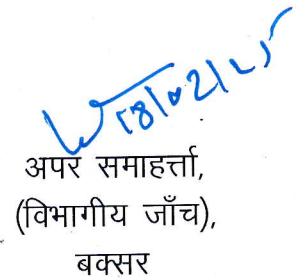 18/02/25
अपर समाहर्त्ता,
(विभागीय जाँच),
बक्सर